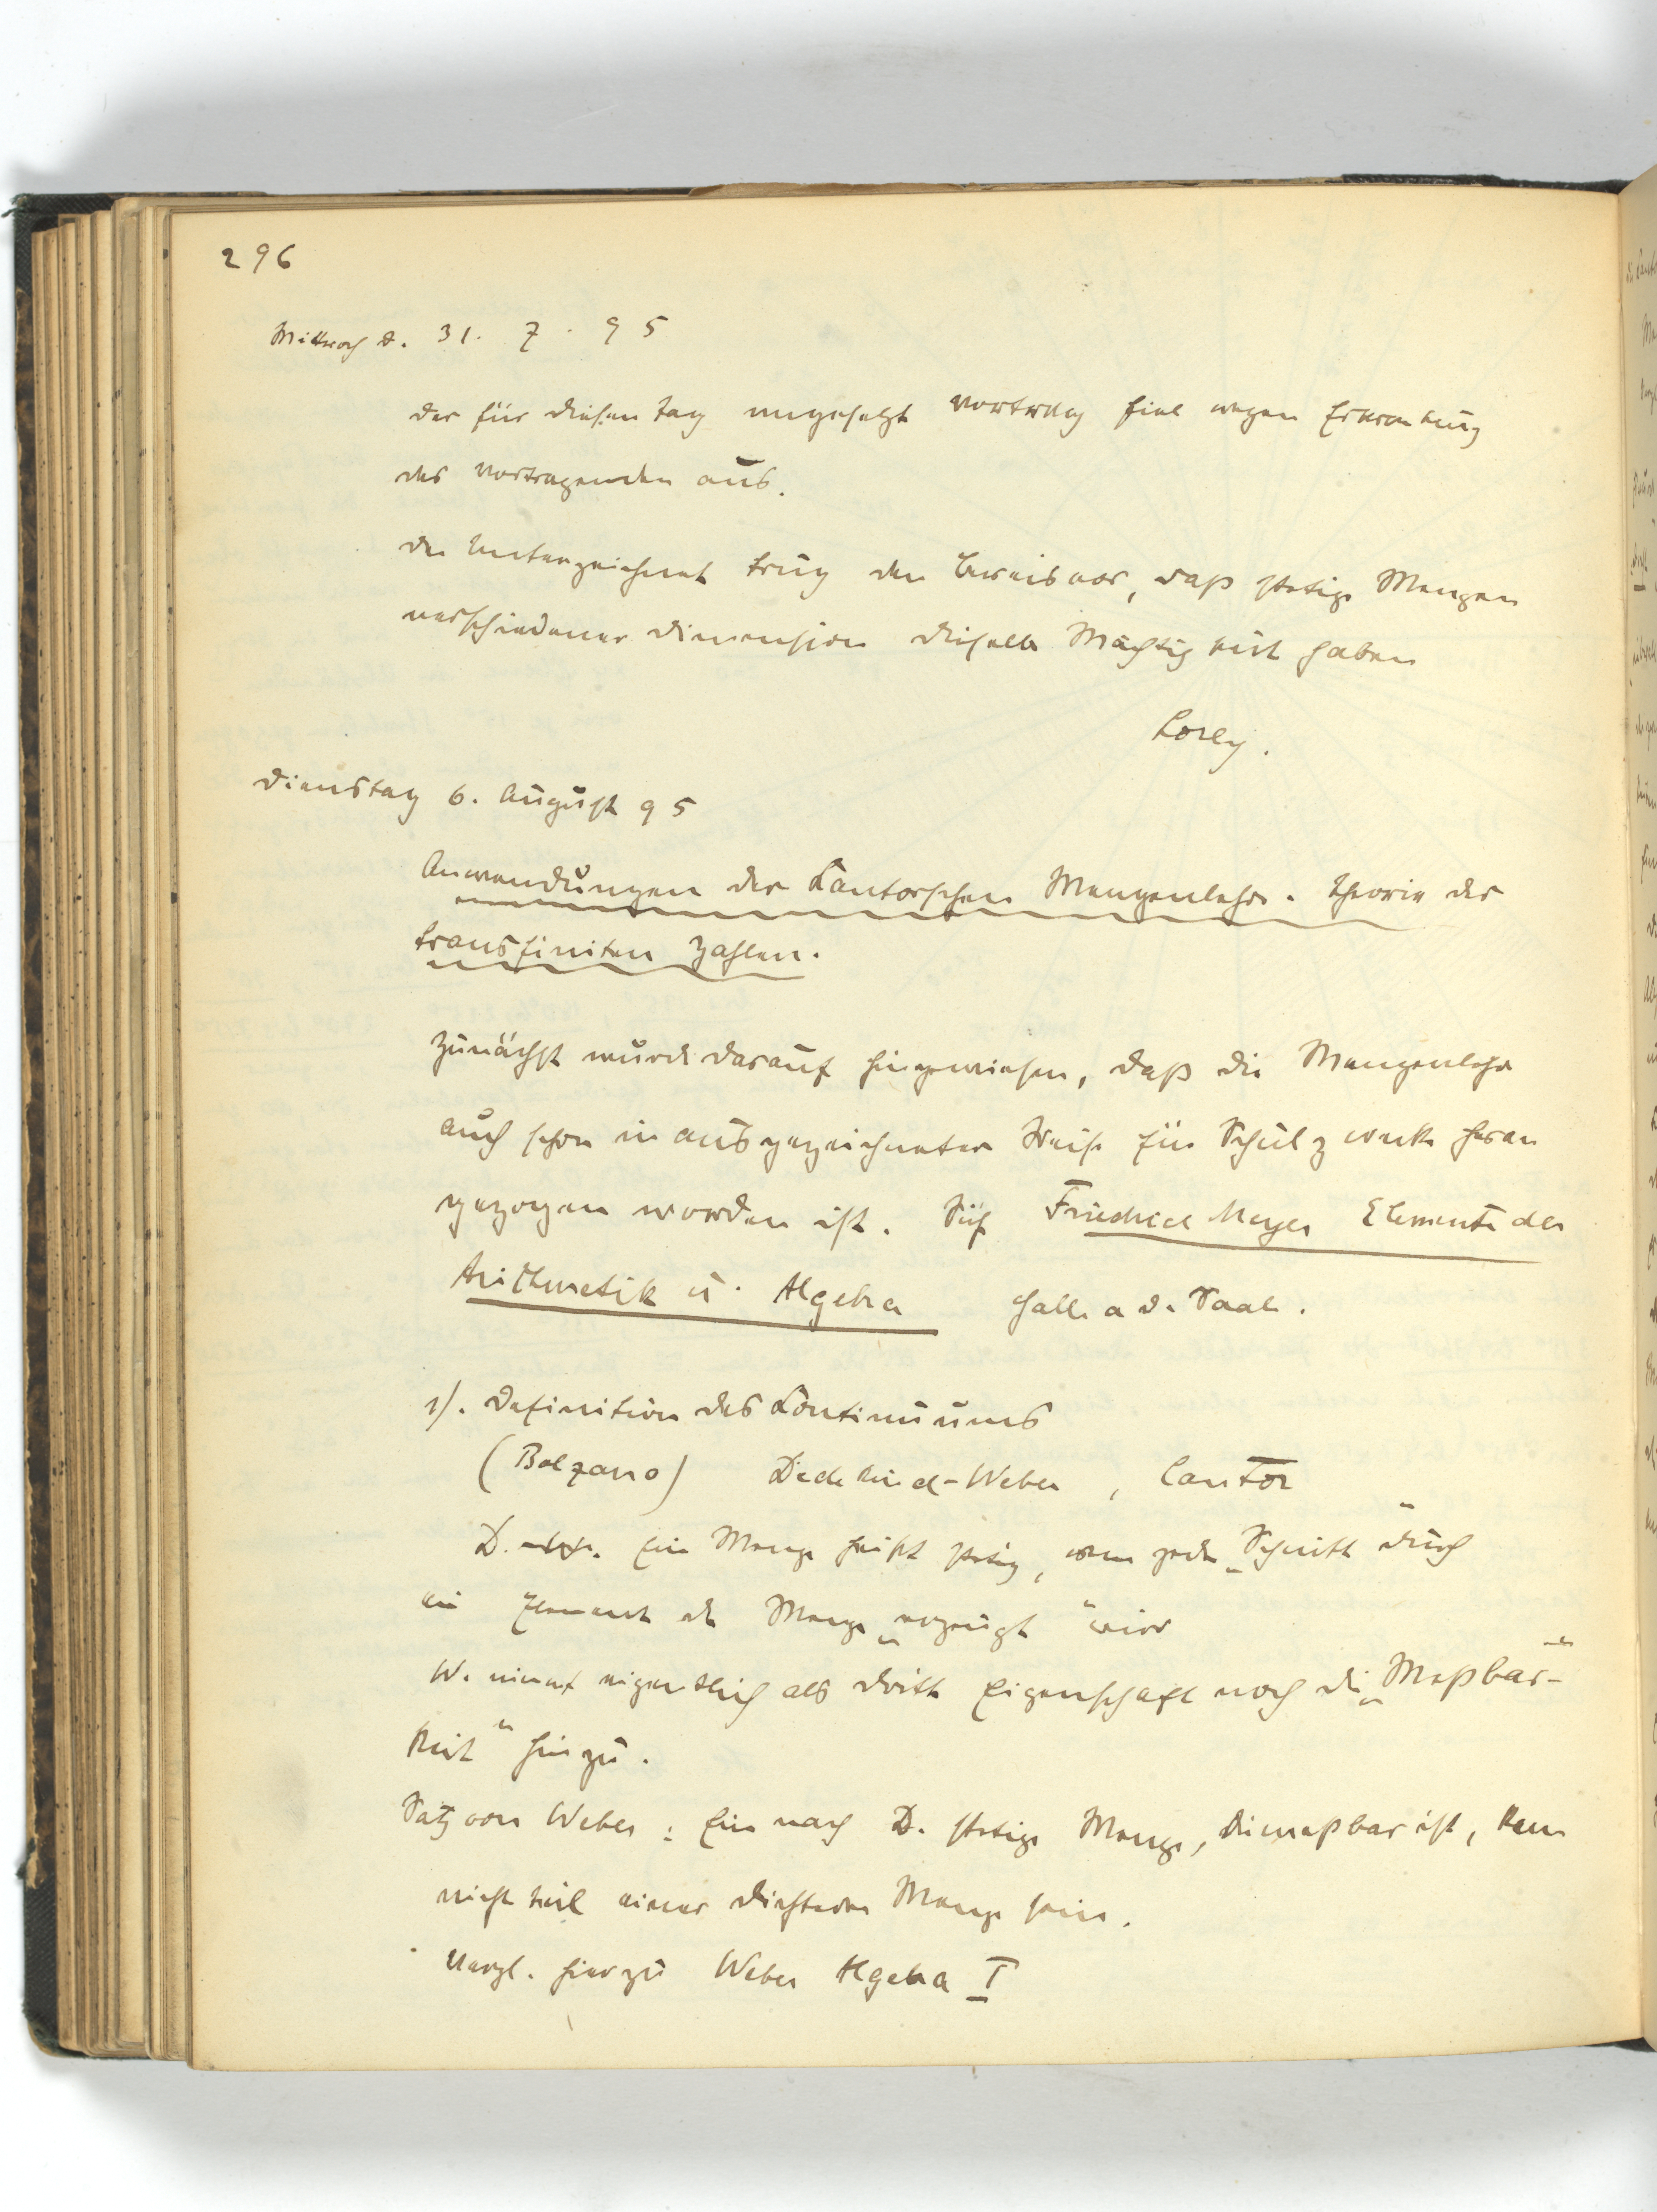 296
Mittwoch d. 31. 7. 95
der für diesen Tag angesetzt Vortrag fiel wegen Erkrankung
des Vortragenden aus.
der Unterzeichnet trug den Beweis vor, daß stetige Mengen
verschiedener Dimension dieselbe Mächtigkeit haben
Lorey.
Dienstag 6. August 95
Anwendungen der Cantorschen Mengenlehre. Theorie der
transfiniten Zahlen.
Zunächst wurde darauf hingewiesen, daß die Mengenlehre
auch schon in ausgezeichneter Weise für Schulzwecke heran
gezogen worden ist. Siehe Friedrich Meyer Elemente der
Arithmetik u. Algebra Halle a d. Saale.
1). Definition des Continuums
(Bolzano) Dedekind-Weber, Cantor
D. Eine Menge heißt stetig, wenn jeder „Schnitt“ durch
ein Element der Menge „erzeugt“ wird
W. nimmt eigentlich als dritte Eigenschaft noch die „Meßbar-
keit“ hinzu.
Satz von Weber: Eine nach D. stetige Menge, die meßbar ist, kann
nicht Teil einer dichteren Menge sein.
Vergl. hierzu Weber Algebra I